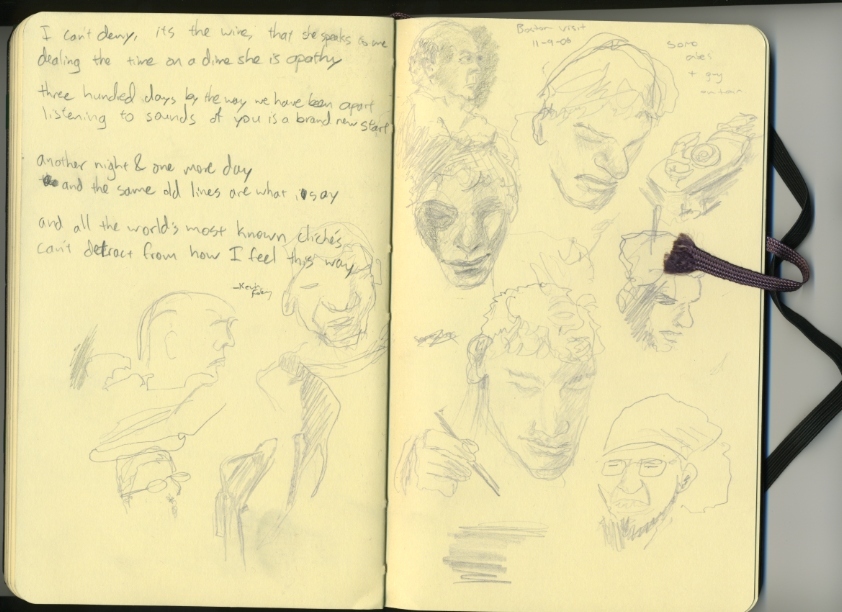 I can't deny, its the wire, that she speaks is me
dealing the time on a dime she is apathy
three hundred days by the way we have been apart
listening to sounds of you is a brand new start
another night & one more day
and the same old lines are what i say
and all the world's most known cliché's
can't detract from how I feel this way
Boston visit
11-9-09